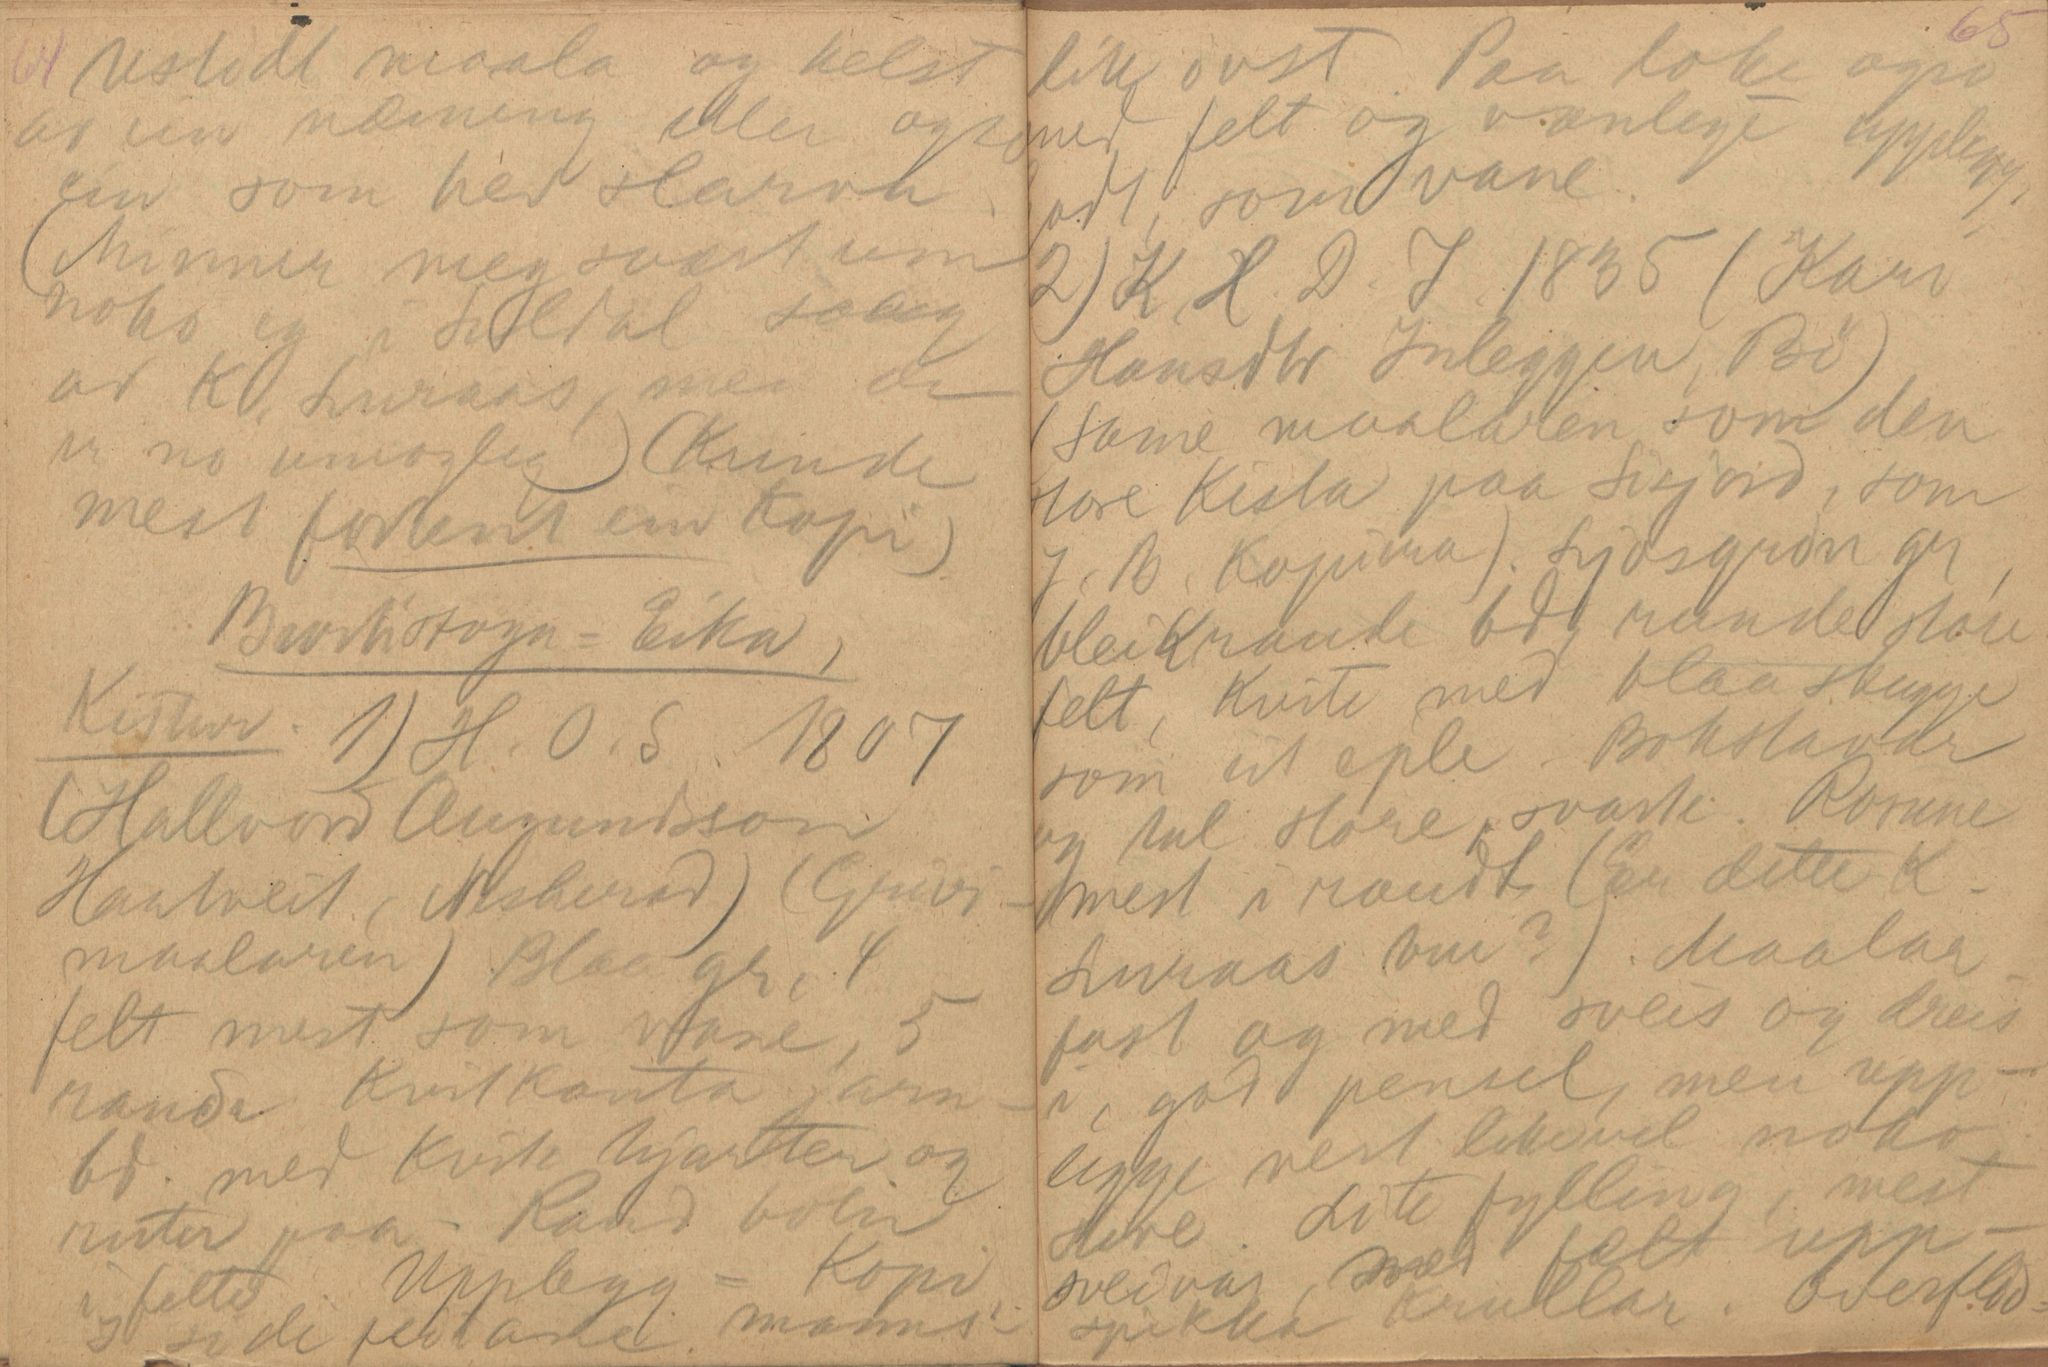 64
Ustødt maala og helst
av ein næming eller ogso
ein som hed starva
(Minner meg svært um
noko eg i Luldal saag
av K. Luraas, men de
er no umogleg) (Kunde
mest fodent ein Kopi)
Eika,
Kistur. 1) H. O. S. 1807
(Hallvord Augundsson
Haatveit, Nesherad) (Grivi-
maalaren) Blaa gr, 4
felt mest som vane, 5
rande Kvitkanta jarn-
bd. med Kvite hjarter og
ruter paa - Rand
i felte. Upplegg = Kopi
manns
65
lik ovst. Paa loke ogso
med felt og vanlege upplegg,
odt, som vane.
2) K H. D. I. 1835 (Kari
Hansdtr Inleggen, Bø)
(same maalaren som den
store Kista paa Lisjord, som
J. B. Kopiera). Ljosgrøn gr,
bleikraude bd, runde store
felt, Kvite med blaa skugge
som eit eple. Bokstavar
og tal store, svarte. Rosune
mest i raudt (Er dette K.
Luraas burt?). Maalar
fast og med sveis og dreis
i, god pensel, men upp-
legge vert likevel noko
stive. Lite fylling, mest
med felt upp-
spikka Krullar. Overflød-